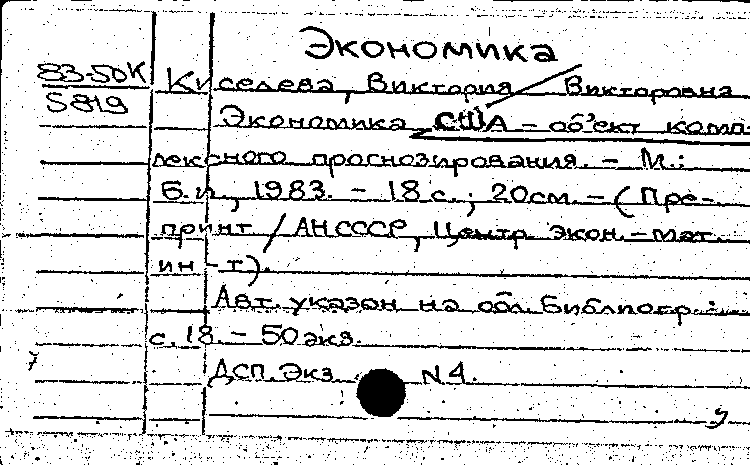 Экономика
83-50К Киселева, Виктория Викторовна
5819 Экономика США – об'ект комп-
лексного прогнозирования. – М.:
Б.и., 1983. – 18 с.; 20см. – (Пре-
принт / АН СССР, Центр. экон.-мат.
ин-т).
Авт. указан на обл. Библиогр.:
с. 18. – 50 экз.
ДСП. Экз. N 4.